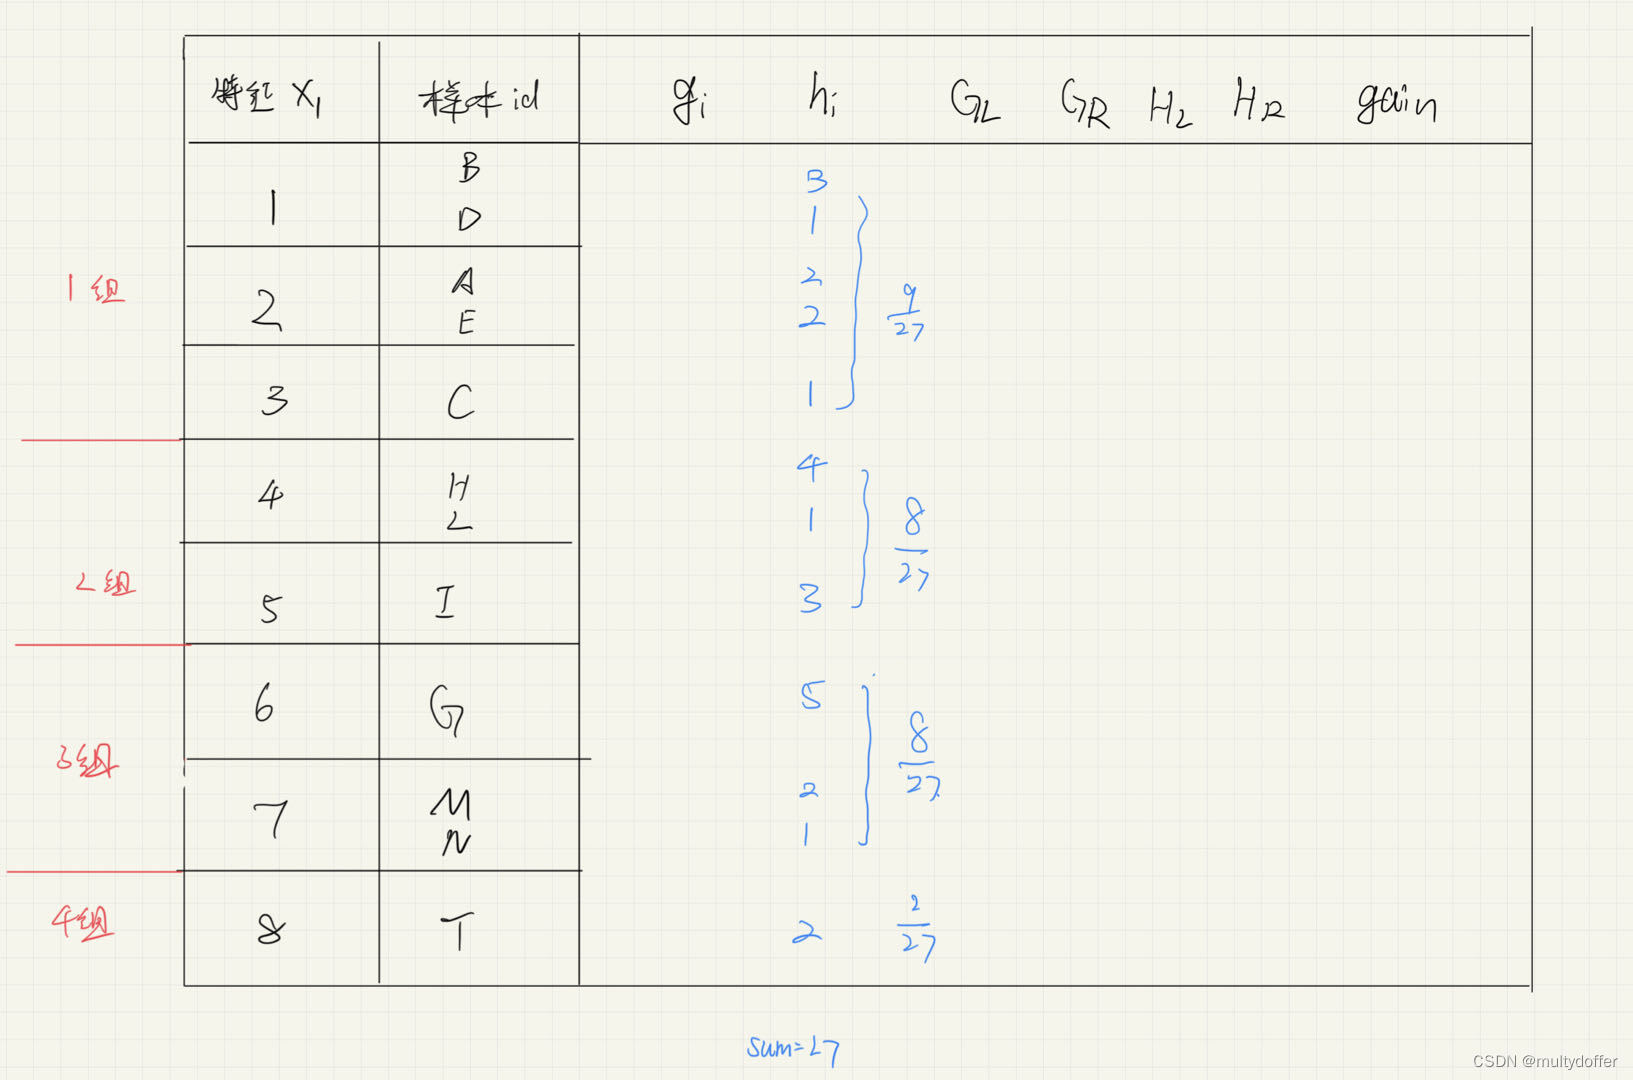 特征 X₁ 样本 id gᵢ hᵢ G_L G_R H_L H_R gain
1组
1 B 3
D 1
2 A 2
E 2
3 C 1
9/27
2组
4 H 4
L 1
5 I 3
8/27
3组
6 G 5
7 M 2
N 1
8/27
4组
8 T 2
2/27
sum=27
CSDN @multydoffer